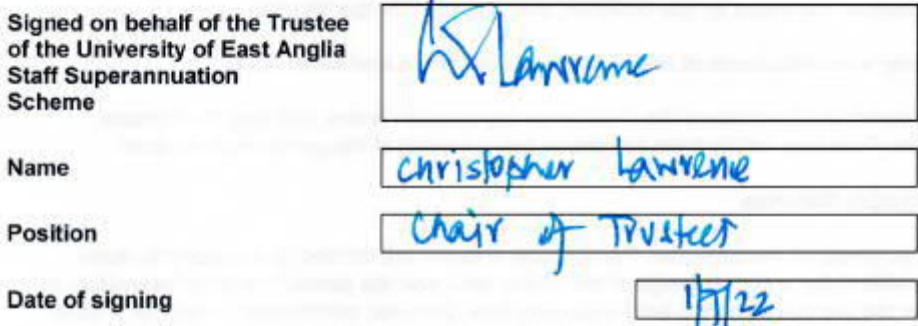 Signed on behalf of the Trustee
of the University of East Anglia
Staff Superannuation
Scheme
Lawrence
Name
Christopher Lawrence
Position
Chair of Trustees
Date of signing